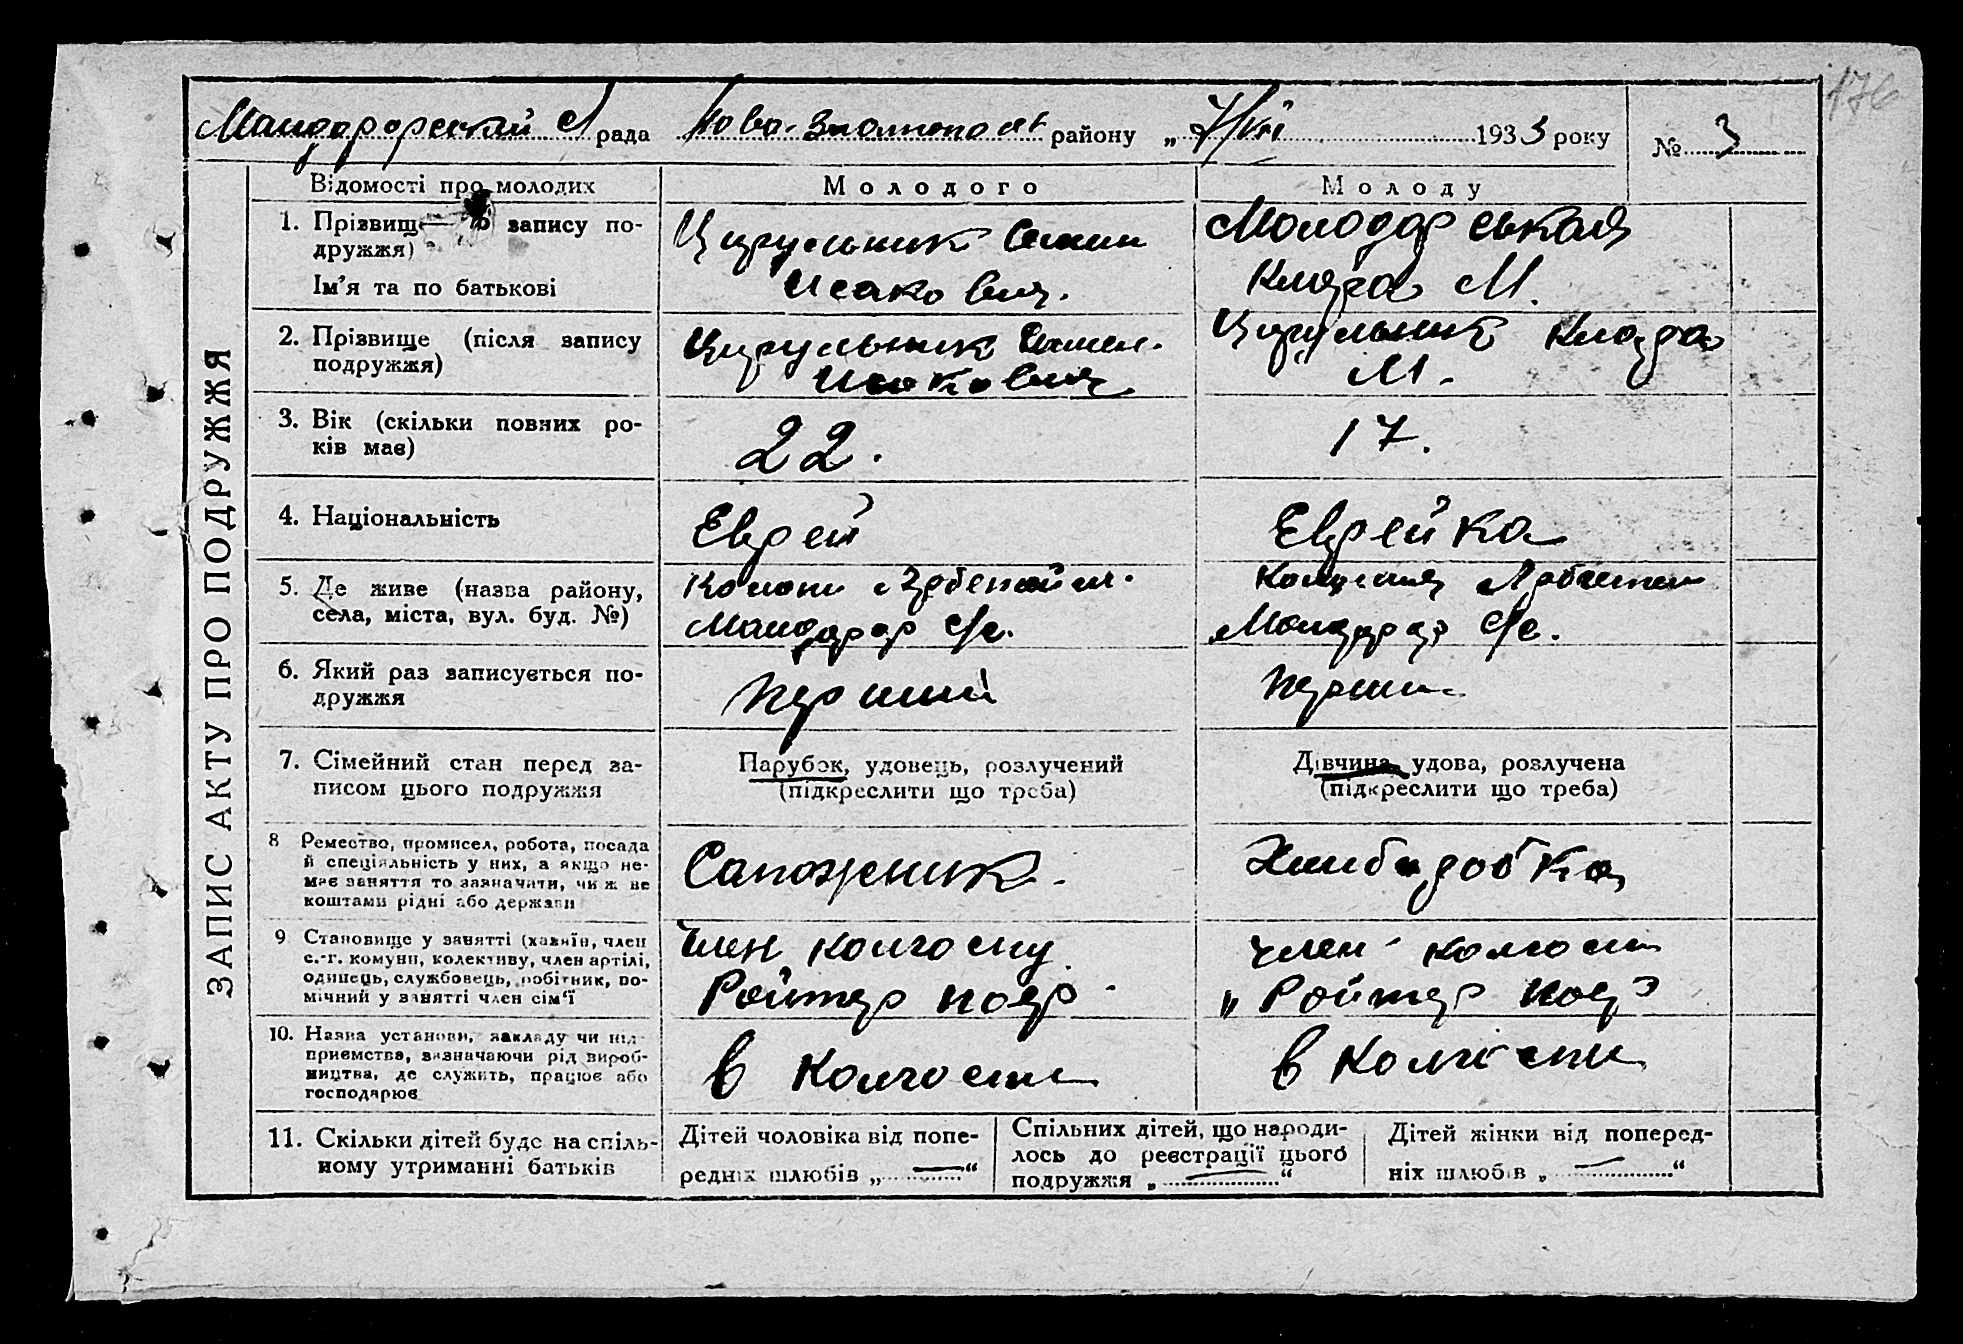 176
Мандорфский с/рада Ново-Златопольск району „ 7/VII 1933 року № 3
ЗАПИС АКТУ ПРО ПОДРУЖЖЯ
Відомості про молодих
Молодого
Молоду
1. Прізвище запису по-
дружжя)
Ім'я та по батькові
Цирульник Семен
Исакович.
Молодор ськая
Клара М.
2. Прізвище (після запису
подружжя)
Цирульник Семен.
Исакович
Цирульник Клара
М.
3. Вік (скільки повних ро-
ків має)
22.
17.
4. Національність
Еврей
Еврейка
5. Де живе (назва району,
села, міста, вул. буд. №)
Колони
с/с.
Колония
с/с.
6. Який раз записується по-
дружжя
перший
перши
7. Сімейний стан перед за-
писом цього подружжя
Парубок, удовець, розлучений
(підкреслити що треба)
Дівчина, удова, розлучена
(підкреслити що треба)
8 Ремество, промисел, робота, посада
й спеціяльність у них, а якщо не-
має заняття то зазначити, чи ж не
коштами рідні або держави
Сапожник.
9 Становище у занятті (хазяїн, член
с.-г. комуни, колективу, член артілі,
одинець, службовець, робітник, по-
мічний у занятті член сім'ї
Член колгоспу
Ройтер поер
член колгосп
„ Ройтер поер
10. Назва установи, закладу чи під-
приємства, зазначаючи рід вироб-
ництва, де служить, працює або
господарює
в колгоспи
в колгоспи
11. Скільки дітей буде на спіль-
ному утриманні батьків
Дітей чоловіка від попе-
редніх шлюбів „ — “
Спільних дітей, що народи-
лось до реєстрації цього
подружжя „ — “
Дітей жінки від поперед-
ніх шлюбів „ — “